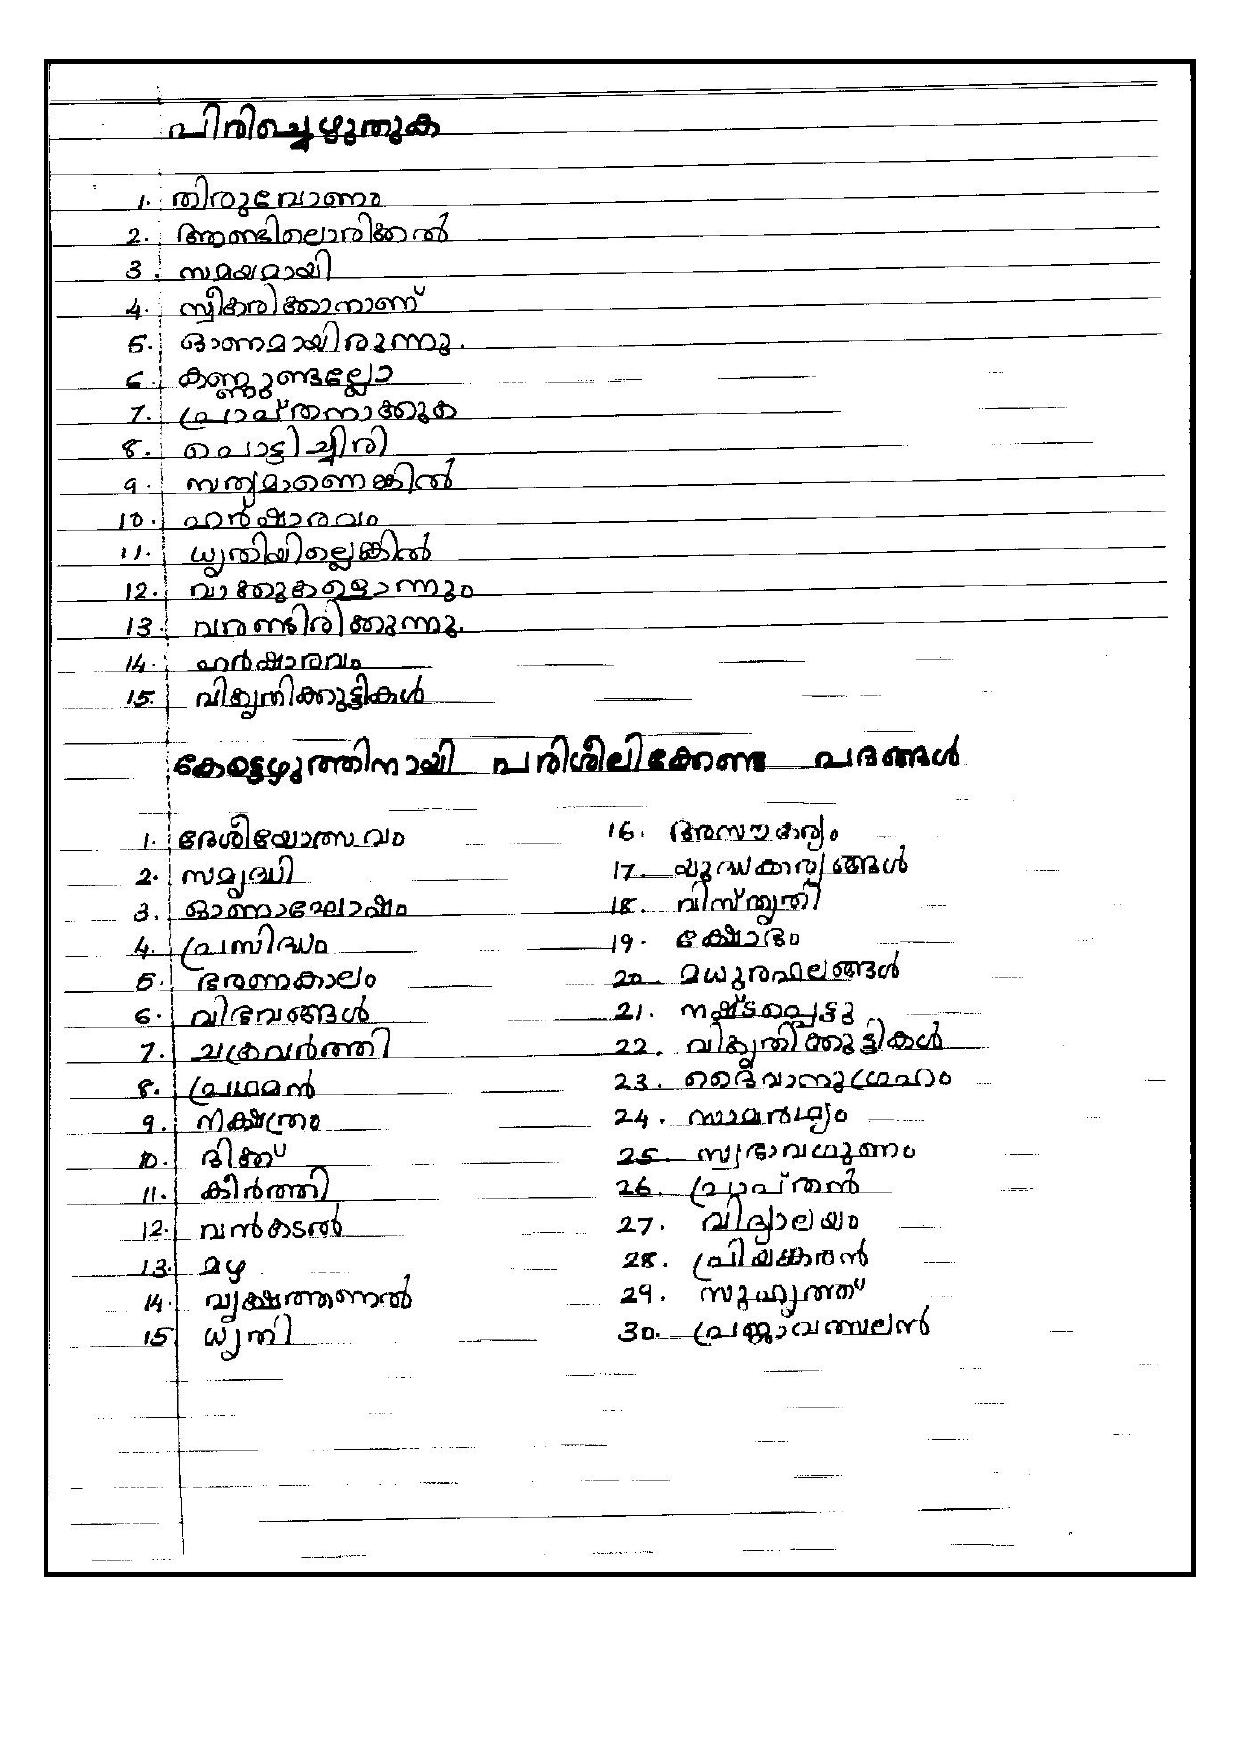 പിരിച്ചെഴുതുക
1. തിരുവോണം
2. ആണ്ടിലൊരിക്കൽ
3. സമയമായി
4. സ്വീകരിക്കാനാണ്
5. ഓണമായിരുന്നു.
6. കണ്ണുണ്ടല്ലോ
7. പ്രാപ്തനാക്കുക
8. പൊട്ടിച്ചിരി
9. സത്യമാണെങ്കിൽ
10. ഹർഷാരവം
11. ധൃതിയില്ലെങ്കിൽ
12. വാക്കുകളൊന്നും
13. വരണ്ടിരിക്കുന്നു.
14. ഹർഷാരവം
15. വികൃതിക്കുട്ടികൾ
കേട്ടെഴുത്തിനായി പരിശീലിക്കേണ്ട പദങ്ങൾ
1. ദേശീയോത്സവം
2. സമൃദ്ധി
3. ഓണാഘോഷം
4. പ്രസിദ്ധം
5. ഭരണകാലം
6. വിഭവങ്ങൾ
7. ചക്രവർത്തി
8. പ്രഥമൻ
9. നക്ഷത്രം
10. ദിക്ക്
11. കീർത്തി
12. വൻകടൽ
13. മഴ
14. വൃക്ഷത്തണൽ
15. ധൃതി
16. അസൗകര്യം
17. യുദ്ധകാര്യങ്ങൾ
18. വിസ്തൃതി
19. ക്ഷോഭം
20. മധുരഫലങ്ങൾ
21. നഷ്ടപ്പെട്ടു
22. വികൃതിക്കുട്ടികൾ
23. ദൈവാനുഗ്രഹം
24. സാമർഥ്യം
25. സ്വഭാവഗുണം
26. പ്രാപ്തൻ
27. വിദ്യാലയം
28. പ്രിയങ്കരൻ
29. സുഹൃത്ത്
30. പ്രജാവത്സലൻ